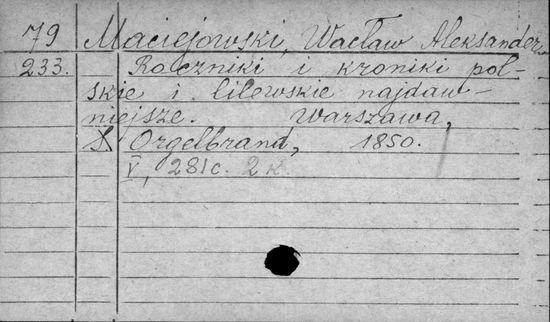 79 Maciejowski, Wacław Aleksander.
233. Roczniki i kroniki pol-
skie i litewskie najdaw-
niejsze. Warszawa,
S. Orgelbrand, 1850.
V, 281 c. 2 к